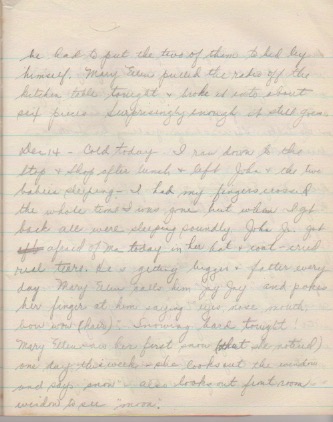 he had to put the two of them to bed by
himself. Mary Ellen pulled the radio off the
kitchen table tonight & broke it into about
six pieces. Surprisingly enough it still goes.
Dec 14 - Cold today - I ran down to the
Stop & Shop after lunch & left John & the two
babies sleeping - I had my fingers crossed
the whole time I was gone but when I got
back all were sleeping soundly. John Jr. got
afraid of me today in hat & coat - cried
real tears. He is getting bigger & fatter every
day. Mary Ellen calls him "Jay Jay" and pokes
her finger at him saying eyes nose mouth
bow wow (hair). Snowing hard tonight!
Mary Ellen saw her first snow (that she noticed)
one day this week - she looks out the window
and says "snow" - also looks out front room
window to see "moon".